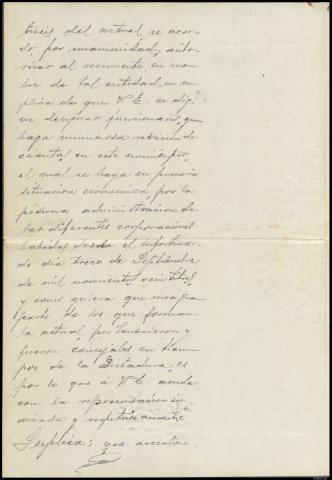 trecis del actual, se acor-
do, por unanimidad, auto-
rizar al recurrente, en nom-
bre de tal entidad, en su-
plica de que V. E. se dig-
ne designar funcionario, que
haga minuciosa revision de
cuentas, en este municipio,
el cual se haya en precaria
situacion economica por la
pesima administracion de
las diferentes corporaciones
habidas desde el infortuna-
do dia trece de Septiembre
de mil novecientos veintitres,
y como quiera que una gran
parte de los que forman
la actual, pertenecieron y
fueron concejales en tiem-
pos de la Dictadura, es
por lo que á V. E. acude
con la representacion in-
dicada y respetuosamente
Suplica: que